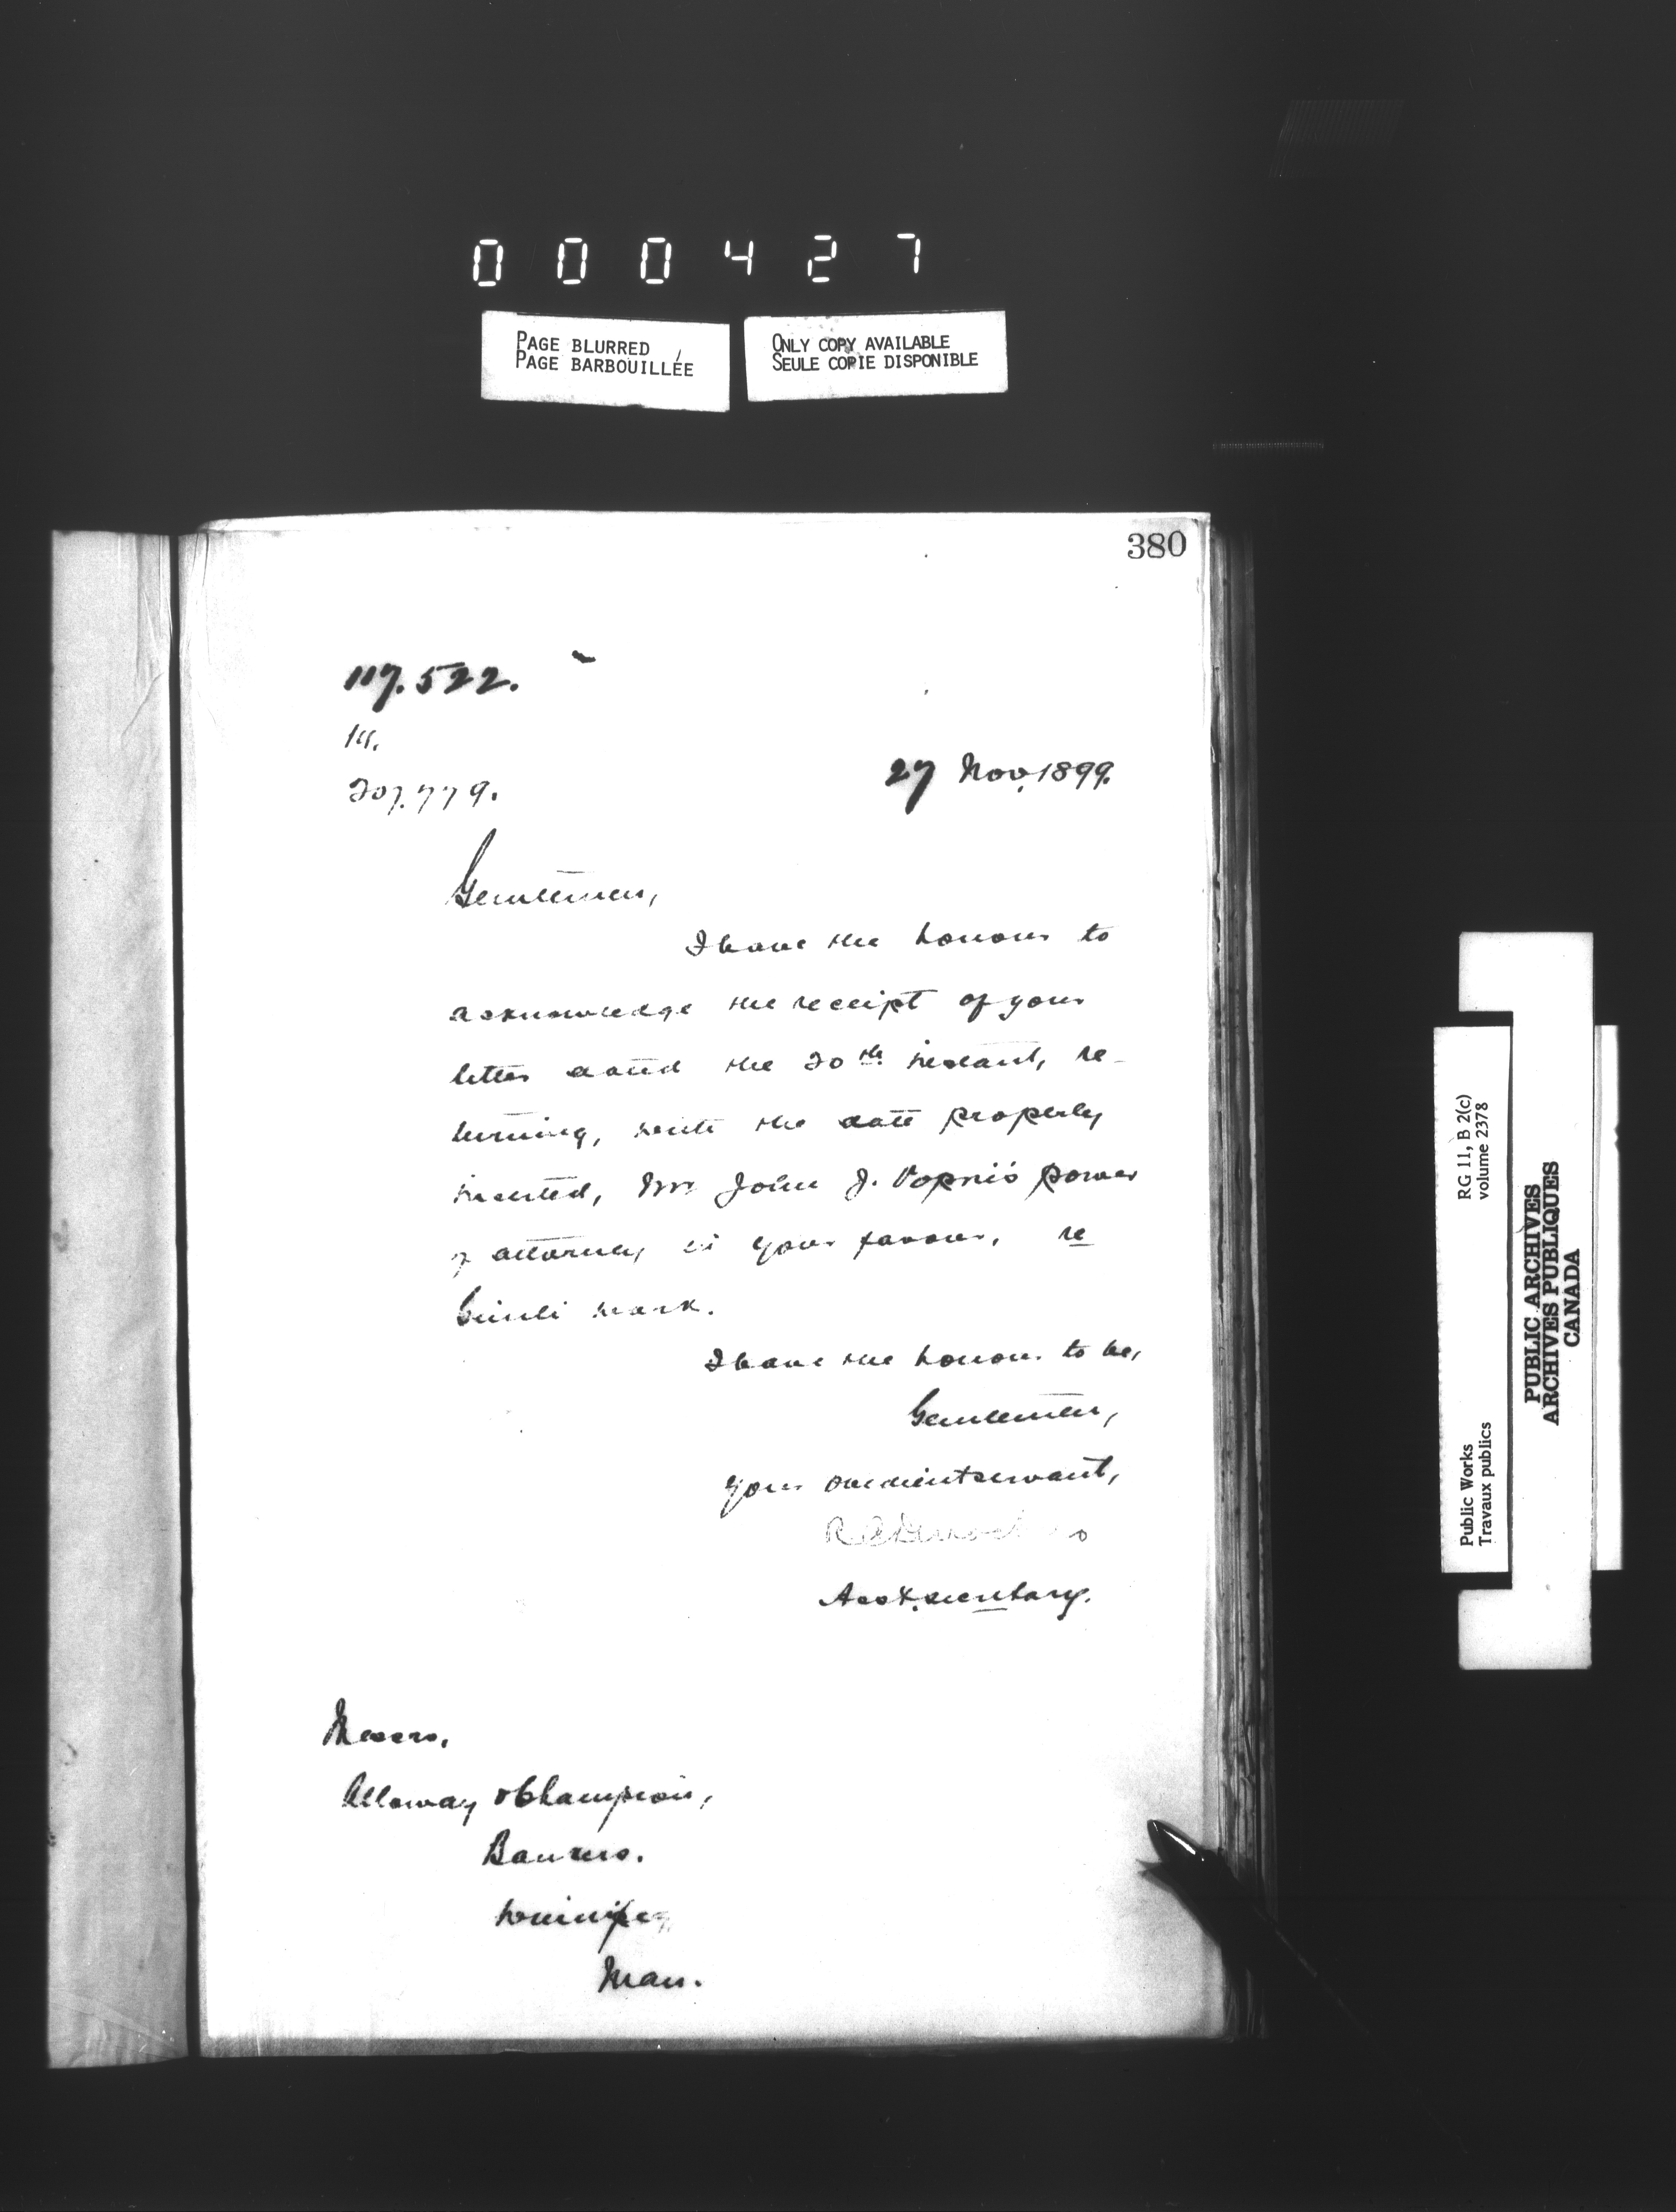 000427
PAGE BLURRED
PAGE BARBOUILLÉE
ONLY COPY AVAILABLE
SEULE COPIE DISPONIBLE
380
117.522.
207.779.
27 Nov. 1899.
Gentlemen,
I have the honour to
acknowledge the receipt of your
letter dated the 20th instant, re-
turning, with the date properly
inserted, Mr John J. Vopni's power
of attorney in your favour, re
Gimli work.
I have the honour to be,
Gentlemen,
Your obedient servant,
Asst. Secretary.
Messrs.
Alloway & Champion,
Bankers.
Winnipeg
Man.
Public Works
Travaux publics
RG 11, B 2(c)
volume 2378
PUBLIC ARCHIVES
ARCHIVES PUBLIQUES
CANADA